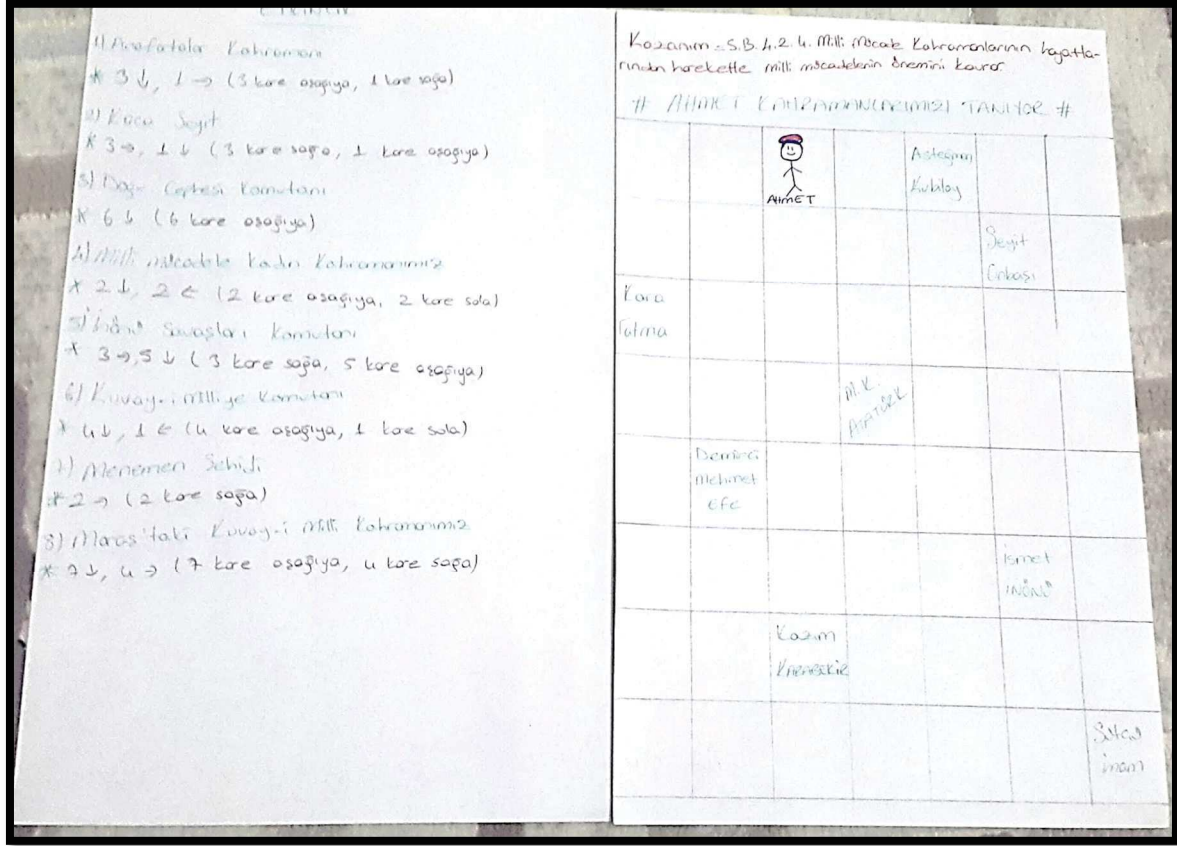 ETKİNLİK
1) Anafartalar Kahramanı
* 3 ↓, 1 → (3 kare aşağıya, 1 kare sağa)
2) Koca Seyit
* 3 →, 1 ↓ (3 kare sağa, 1 kare aşağıya)
3) Doğu Cephesi Komutanı
* 6 ↓ (6 kare aşağıya)
4) Milli mücadele kadın kahramanımız
* 2 ↓, 2 ← (2 kare aşağıya, 2 kare sola)
5) İnönü Savaşları Komutanı
* 3 →, 5 ↓ (3 kare sağa, 5 kare aşağıya)
6) Kuvay-i milliye Komutanı
* 4 ↓, 1 ← (4 kare aşağıya, 1 kare sola)
7) Menemen Şehidi
* 2 → (2 kare sağa)
8) Maraş'taki Kuvay-i Milli Kahramanımız
* 7 ↓, 4 → (7 kare aşağıya, 4 kare sağa)
Kazanım = S.B. 4.2.4. Milli Mücale Kahramanlarının hayatla-
rından hareketle milli mücadelenin önemini kavrar.
# AHMET KAHRAMANLARIMIZI TANIYOR #
AHMET
Asteğmen
Kubilay
Seyit
Onbaşı
Kara
Fatma
M.K.
ATATÜRK
Demirci
Mehmet
Efe
İsmet
İNÖNÜ
Kazım
KARABEKİR
Sütçü
İmam